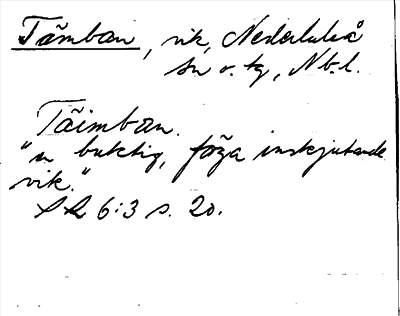 Tåmban, vik, Nederluleå
sn o. tg, Nb. l.
Tåimban.
"n buktig, föga inskjutande
vik."
SL 6:3 s. 20.